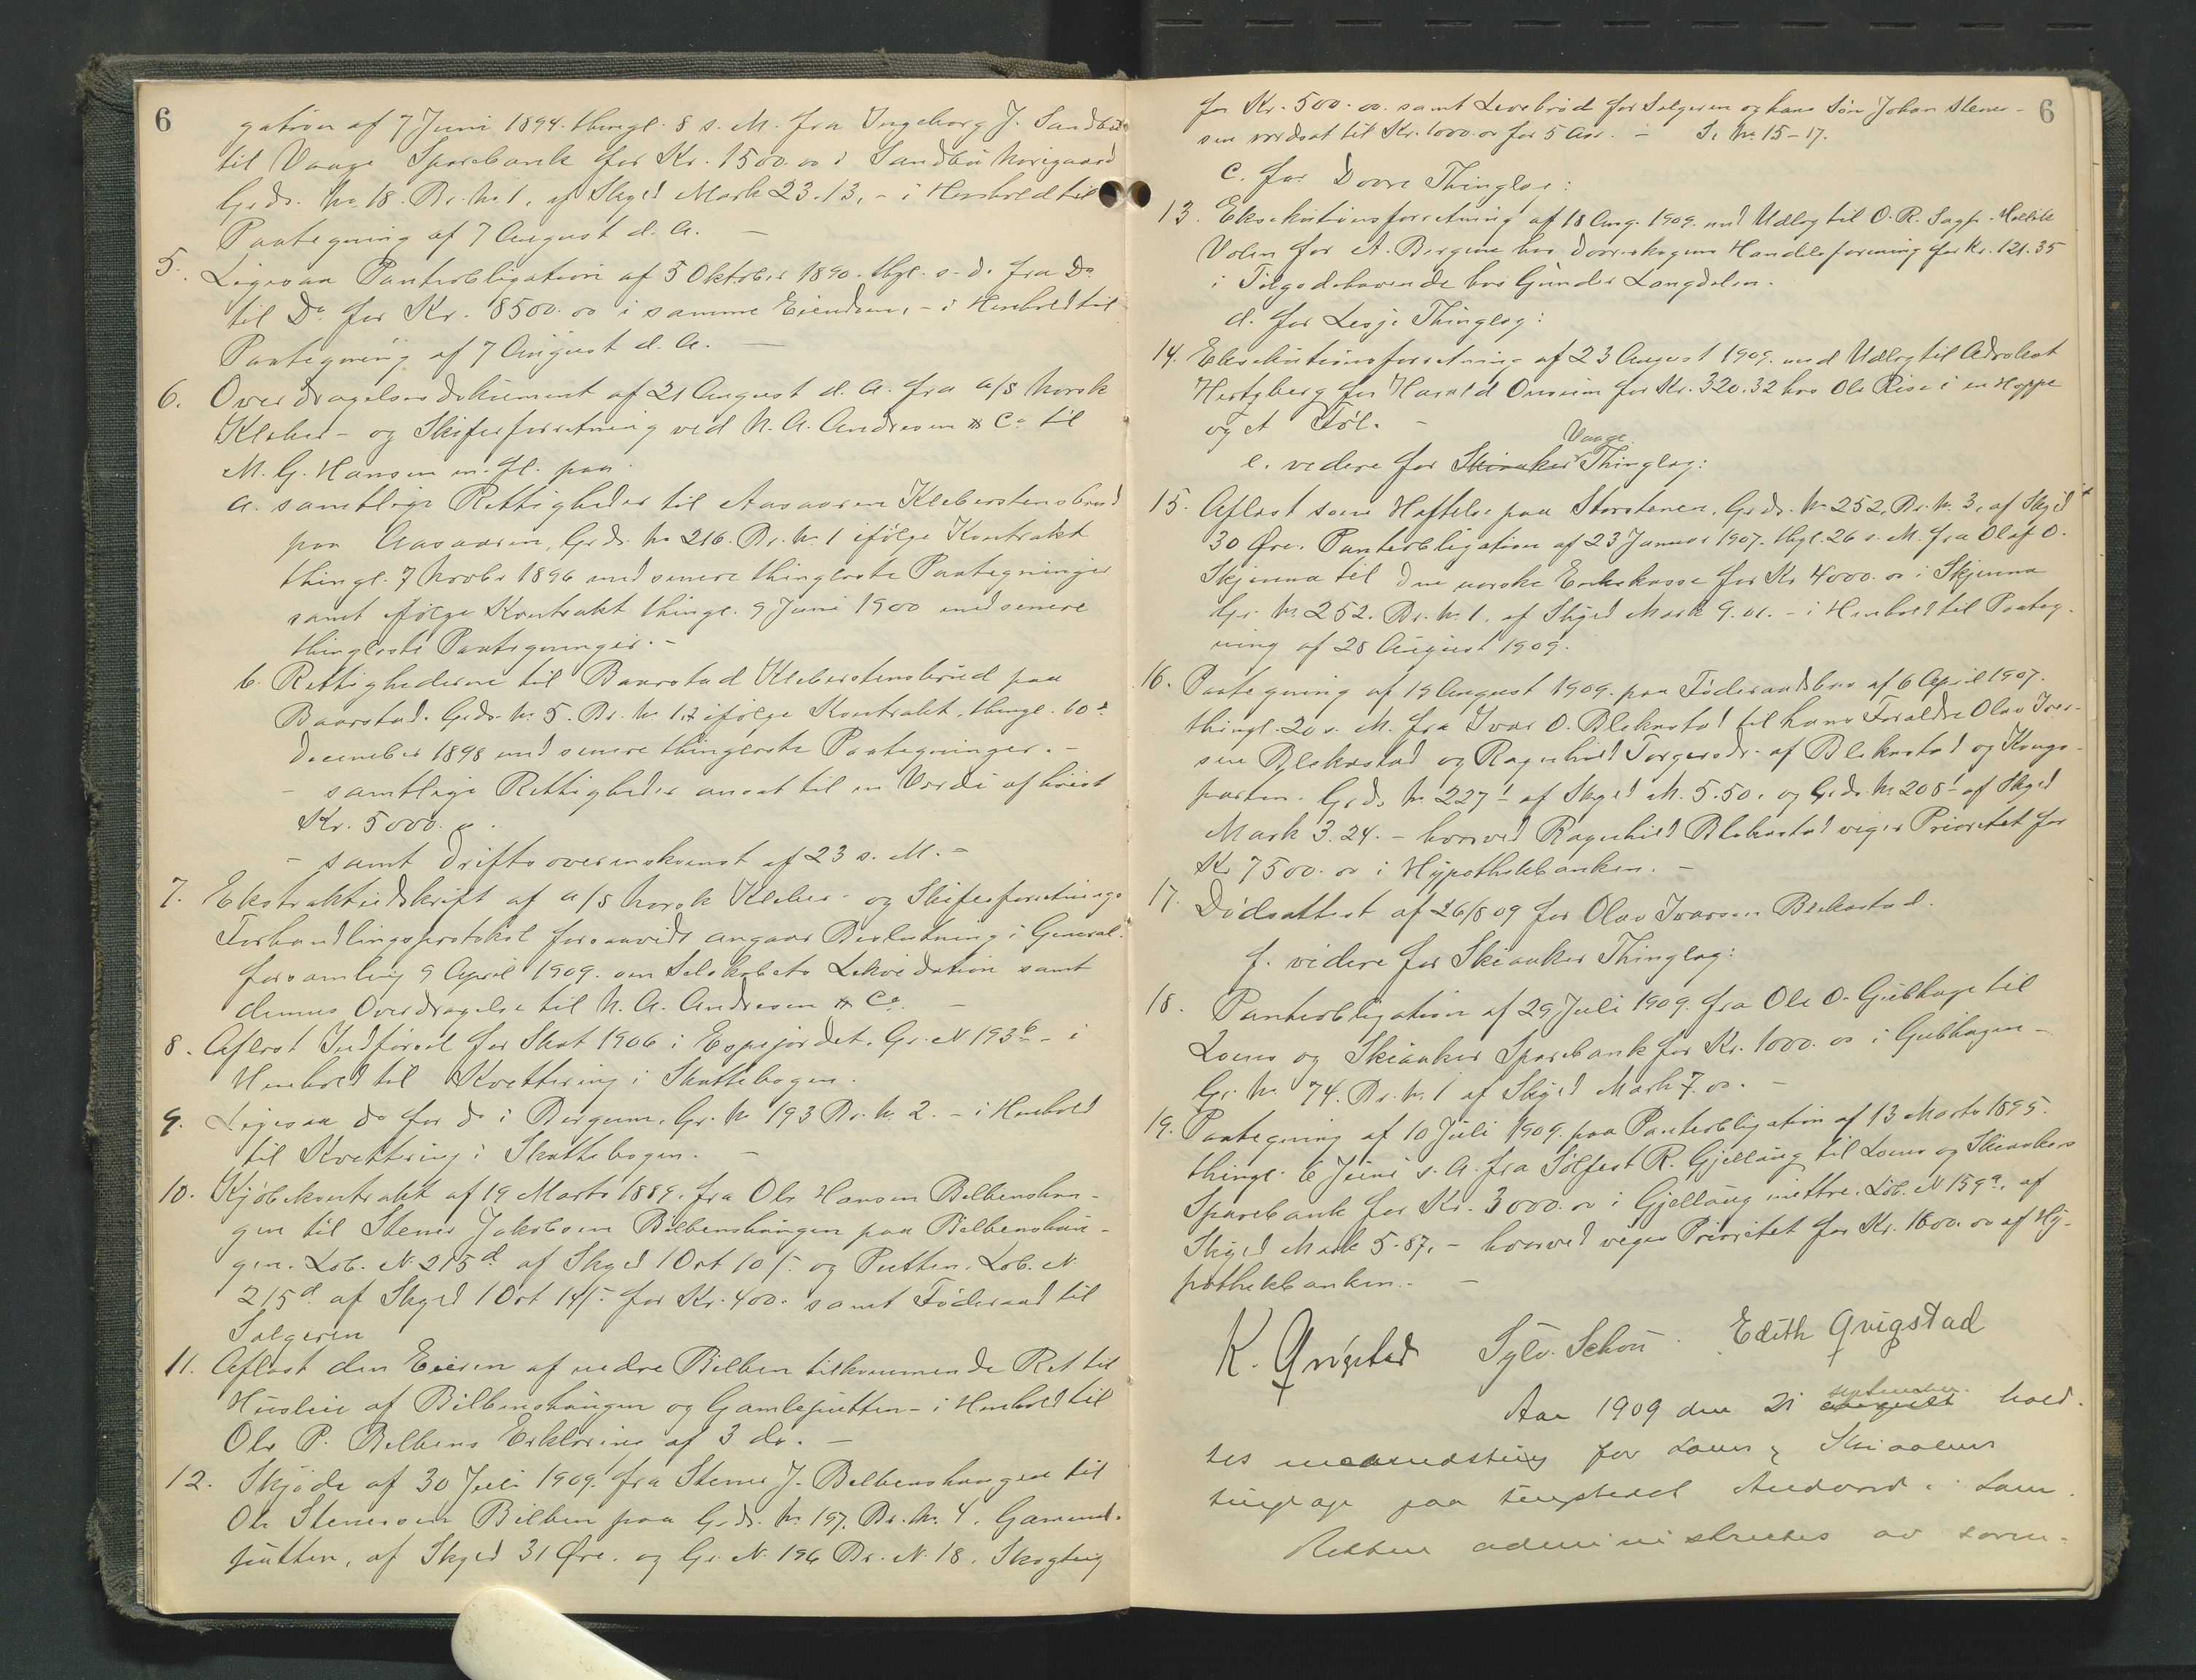 6
gation af 7 Juni 1894. thingl. 8 s. M. fra Ingeborg J. Sandbu
til Vaage Sparebank for Kr. 1500.00 i Sandbu Norigaard
Grds. No. 18. Br. No. 1. af Skyld Mark 23.13, - i Henhold til
Paategning af 7 August d. A. -
5. Ligesaa Panteobligation af 5 Oktober 1890. thgl. s. d. fra Do
til Do for Kr. 8500.00 i samme Eiendom, - i Henhold til
Paategning af 7 August d. A. -
6. Overdragelsesdokument af 21 August d. A. fra a/s Norsk
Kleber- og Skiferforretning ved N. A. Andresen & Co til
M. G. Hansen m. fl. paa
a. samtlige Rettigheder til Aasaaren Kleberstensbrud
paa Aasaaren, Grds. No 216. Br. No 1 ifølge Kontrakt
thingl. 7 Novbr 1896 med senere thinglæste Paategninger
samt ifølge Kontrakt thingl. 9 Juni 1900 med senere
thinglæste Paategninger. -
b. Rettighederne til Baarstad Kleberstensbrud paa
Baarstad. Grds. No. 5. Br. No. 1,2 ifølge Kontrakt, thingl. 10de
December 1898 med senere thinglæste Paategninger. -
- samtlige Rettigheder ansat til en Værdi af høiest
Kr. 5000.
- samt Driftsoverenskomst af 23 s. M. -
7. Ekstraktudskrift af a/s Norsk Kleber- og Skiferforretnings
Forhandlingsprotokol forsaavidt angaar Beslutning i General-
forsamling 9 April 1909. om Selskabets Likvidation samt
dennes Overdragelse til N. A. Andresen & Co. -
8. Aflæst Indførsel for Skat 1906 i Espejordet. Gr. N 193 6 - i
Henhold til Kvittering i Skattebogen.
9. Ligesaa do for do i Bergum, Gr. No 193 Br. No. 2. - i Henhold
til Kvittering i Skattebogen. -
10. Kjøbekontrakt af 19 Marts 1889. fra Ole Hansen Bilbenshau-
gen til Stener Jakobsen Bilbenshaugen paa Bilbenshau-
gen. Løb. N 215 d af Skyld 1 Ort 10 ß og Putten. Løb. N
215 d. af Skyld 1 Ort 14 ß for Kr. 400. samt Føderaad til
Sælgeren
11. Aflæst den Eieren af nedre Bilben tilkommende Ret til
Husleie af Bilbenshaugen og Gamleputten - i Henhold til
Ole P. Bilbens Erklæring af 3 ds. -
12. Skjøde af 30 Juli 1909. fra Stener J. Bilbenshaugen til
Ole Stenersen Bilben paa Grds. No. 197. Br. No. 4. Gammel-
putten, af Skyld 31 Øre. og Gr. N. 196 Br. N. 18. Skogteig
6
for Kr. 500.00. samt Levebrød for Sælgeren og hans Søn Johan Stener-
sen værdsat til Kr. 1000.00 for 5 Aar. - S. No 15-17.
c. for Dovre Thinglag:
13. Eksekutionsforretning af 18 Aug. 1909. med Udlæg til O. R. Sagf.
Volen for A. Bergene hos Dovreskogens Handelsforening for Kr. 121.35
i Tilgodehavende hos Gunder Langdalen.
d. for Lesje Thinglag:
14. Eksekutionsforretning af 23 August 1909. med Udlæg til Advokat
Hertzberg for Harald Onsum for Kr. 320.32 hos Ole Rise i en Hoppe
og et Føl. -
Vaage
e. videre for Skiaaker Thinglag:
15. Aflæst som Heftelse paa Storstenen, Grds. No 252, Br. No. 3, af Skyld
30 Øre. Panteobligation af 23 Januar 1907. thgl. 26 s. M. fra Olaf O.
Skjenna til Den norske Enkekasse for Kr 4000.00 i Skjenna
Gr. No 252. Br. No 1. af Skyld Mark 9.01. - i Henhold til Paateg-
ning af 28 August 1909.
16. Paategning af 19 August 1909. paa Føderaadsbrev af 6 April 1907.
thingl. 20 s. M. fra Ivar O. Blekastad til hans Forældre Olav Iver-
sen Blekastad og Ragnhild Torgersdr. af Blekastad og Kongs-
parten. Grds. No 227 1 af Skyld M. 5.50. og Grds. No 208 1 af Skyld
Mark 3.24. - hvorved Ragnhild Blekastad viger Prioritet for
Kr 7500.00 i Hypothekbanken. -
17. Dødsattest af 26/8 09 for Olav Ivarsen Blekastad.
f. videre for Skiaaker Thinglag:
18. Panteobligation af 29 Juli 1909. fra Ole O. Gubhage til
Loms og Skiaaker Sparebank for Kr. 1000.00 i Gubhagen -
Gr. No 74. Br. No. 1 af Skyld Mark 7.00. -
19. Paategning af 10 Juli 1909. paa Panteobligation af 13 Marts 1895.
thingl. 6 Juni s. A. fra Sølfest R. Gjellaug til Loms og Skiaakers
Sparebank for Kr. 3000.00 i Gjellaug indtre. Løb. N 159 a. af
Skyld Mark 5.87, - hvorved viges Prioritet for Kr. 1600.00 af Hy-
pothekbanken. -
K. Qvigstad Sylv. Schou Edith Qvigstad
september
Aar 1909 den 21 august hold-
tes maanedsting for Lom & Skiaakers
tinglage paa tingstedet Andvord i Lom.
Retten administrertes av soren-